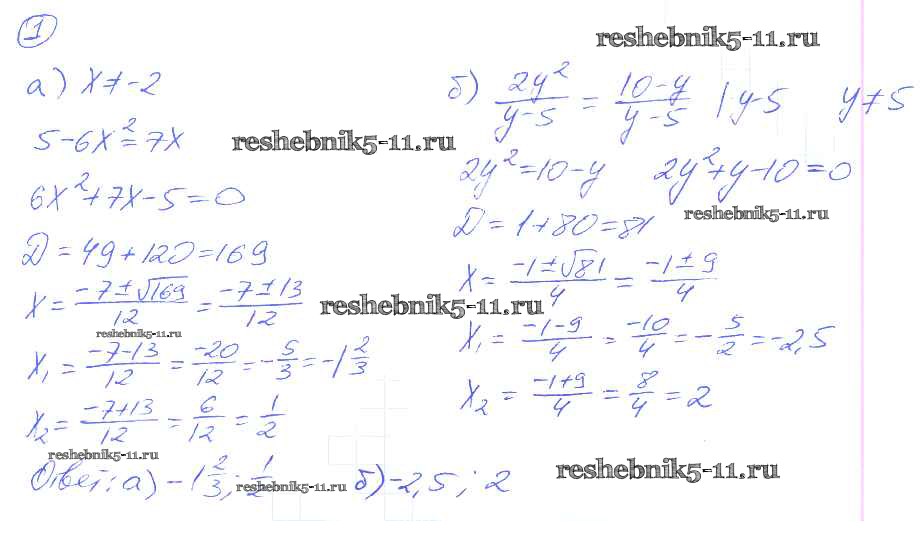 1
reshebnik5-11.ru
а) x ≠ -2
5 - 6x² = 7x
reshebnik5-11.ru
6x² + 7x - 5 = 0
D = 49 + 120 = 169
x = (-7 ± √169)/12 = (-7 ± 13)/12
reshebnik5-11.ru
reshebnik5-11.ru
x₁ = (-7-13)/12 = -20/12 = -5/3 = -1 2/3
x₂ = (-7+13)/12 = 6/12 = 1/2
reshebnik5-11.ru
б) 2y²/(y-5) = (10-y)/(y-5) | y-5 y ≠ 5
2y² = 10 - y 2y² + y - 10 = 0
reshebnik5-11.ru
D = 1 + 80 = 81
x = (-1 ± √81)/4 = (-1 ± 9)/4
x₁ = (-1-9)/4 = -10/4 = -5/2 = -2,5
x₂ = (-1+9)/4 = 8/4 = 2
Ответ: а) -1 2/3; 1/2 б) -2,5; 2
reshebnik5-11.ru
reshebnik5-11.ru